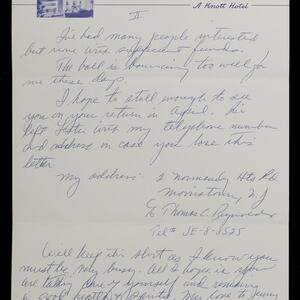 A Knott Hotel
II
He had many people interested
but none with sufficient funds.
The ball is bouncing too well for
me these days.
I hope to stall enough to see
you on your return in April. I've
left with my telephone number
and address in case you lose this
letter
My address 2 Normandy Hts Rd
Morristown, N.J
c/o Thomas C. Reynolds
Tel# JE-8-8525
Will keep it short as I know you
must be very busy. All I hope is you
are taking care of yourself and
good health